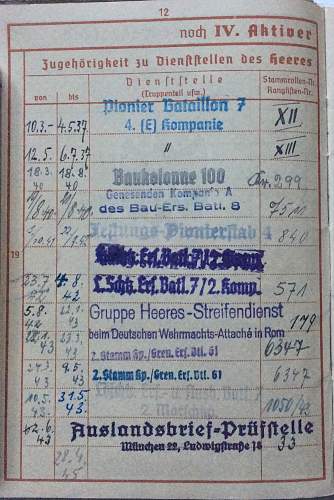 12
noch IV. Aktiver
Zugehörigkeit zu Dienststellen des Heeres
von bis Dienststelle (Truppenteil usw.) Stammrollen-Nr. Ranglisten-Nr.
10.3.- 4.5.37 Pionier Bataillon 7 XII
4. (E) Kompanie
12.5. 6.7.37 " XIII
18.3. 18.8. Baukolonne 100 299
40 40
Genesenden Kompanie A
des Bau-Ers. Batl. 8 7511
Festungs-Pionierstab 4 840
19
23.7. 4.8.
42 42
L. Schtz. Ers. Batl. 7/2. Komp. 571
5.8. Gruppe Heeres-Streifendienst 179
42 43
beim Deutschen Wehrmachts-Attaché in Rom
43 43 2. Stamm Kp./Gren. Ers. Btl. 61 6347
24.3. 9.5. 2. Stamm Kp./Gren. Ers. Btl. 61 6347
43 43
10.5. 31.5. 1050/43
43. 43 2. Marschkp.
2.6. Auslandsbrief-Prüfstelle 33
43 München 22, Ludwigstraße 14
28.4.
45